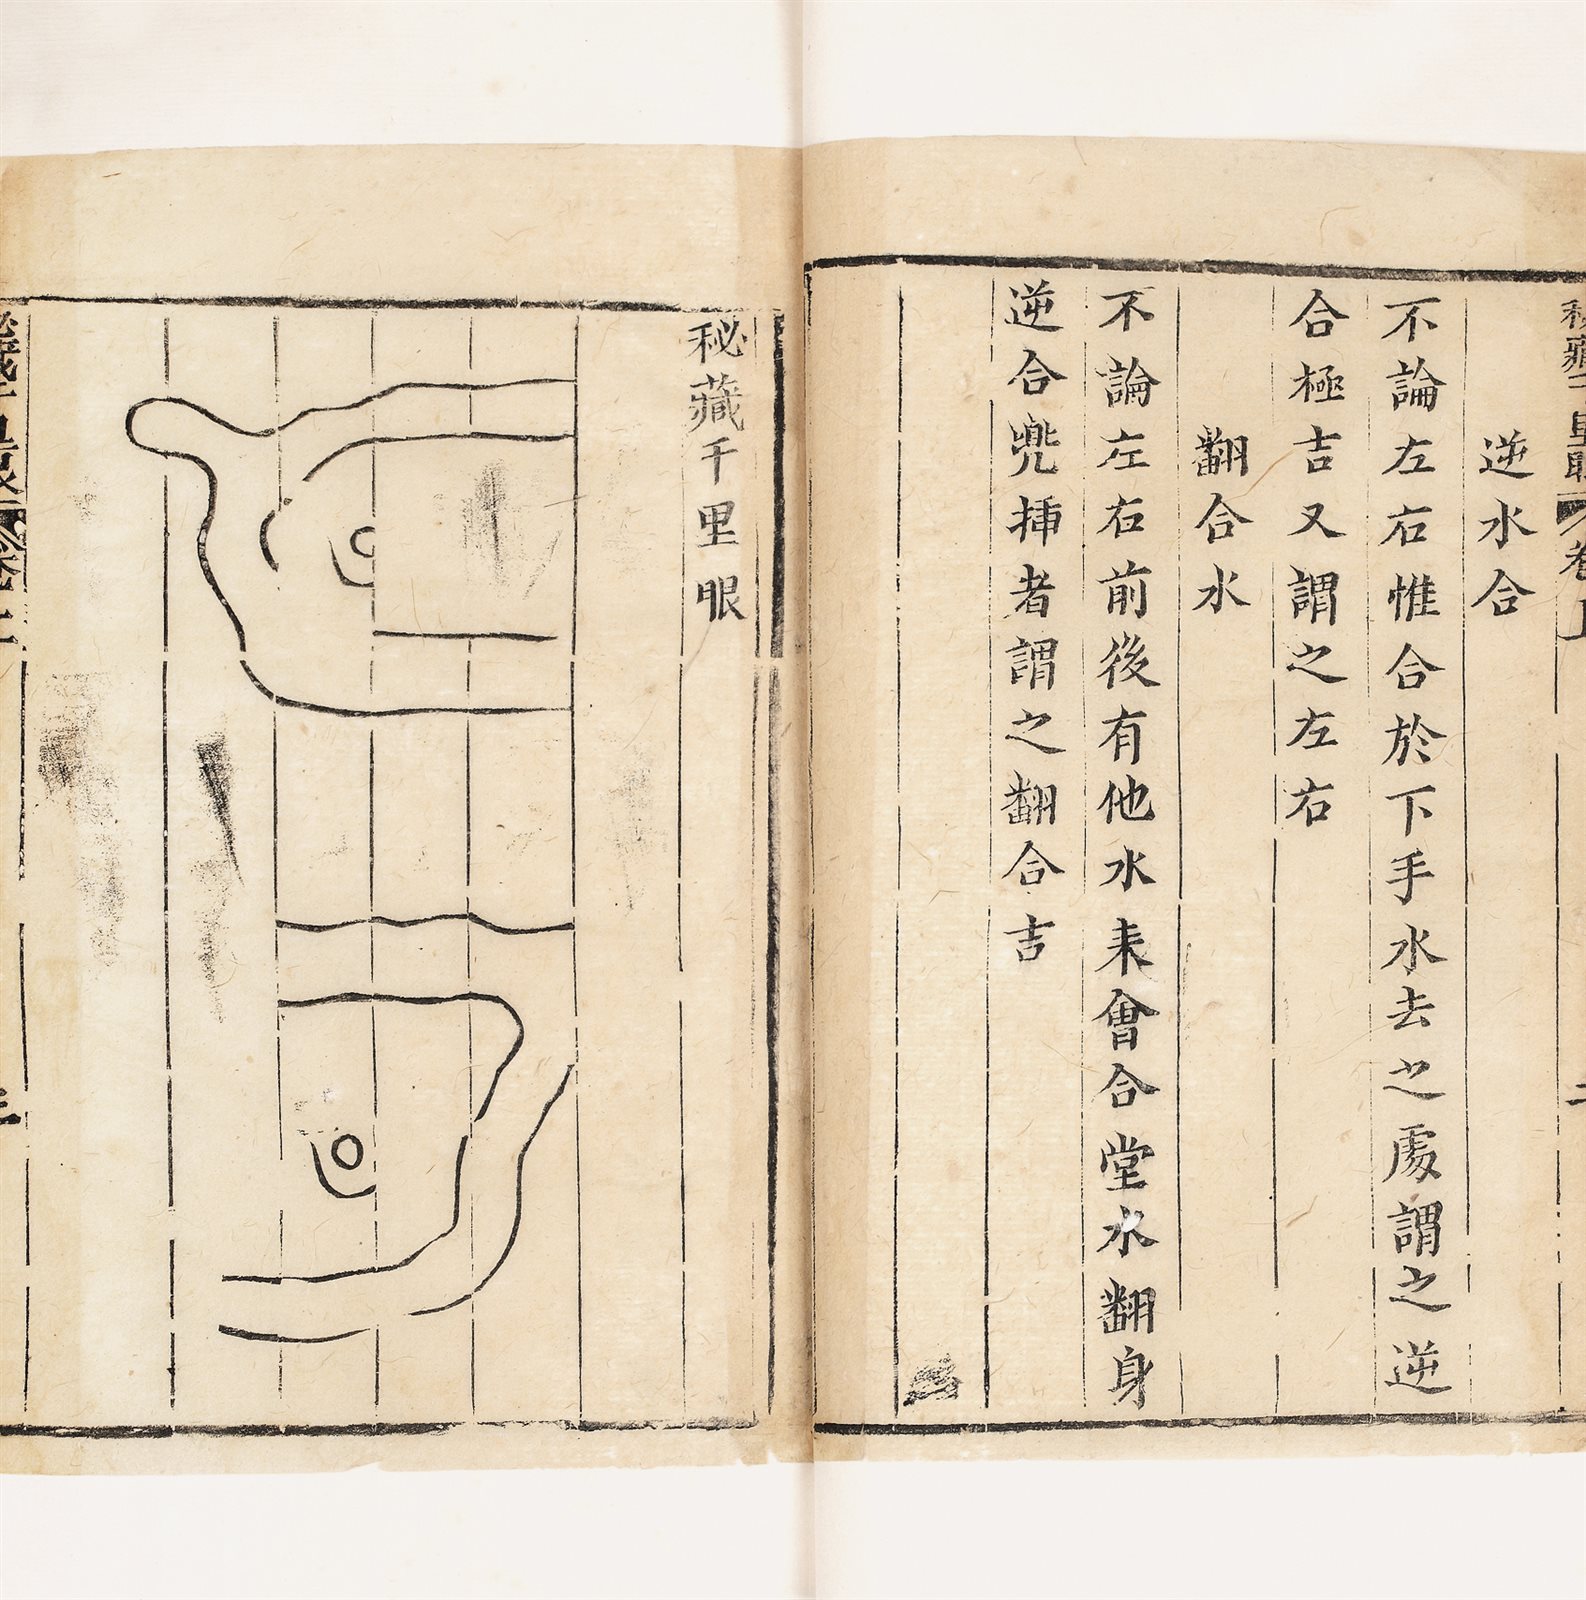 逆水合
不論左右惟合於下手水去之處謂之逆
合極吉又謂之左右
翻合水
不論左右前後有他水来會合堂水翻身
逆合兜揷者謂之翻合吉
秘藏千里眼